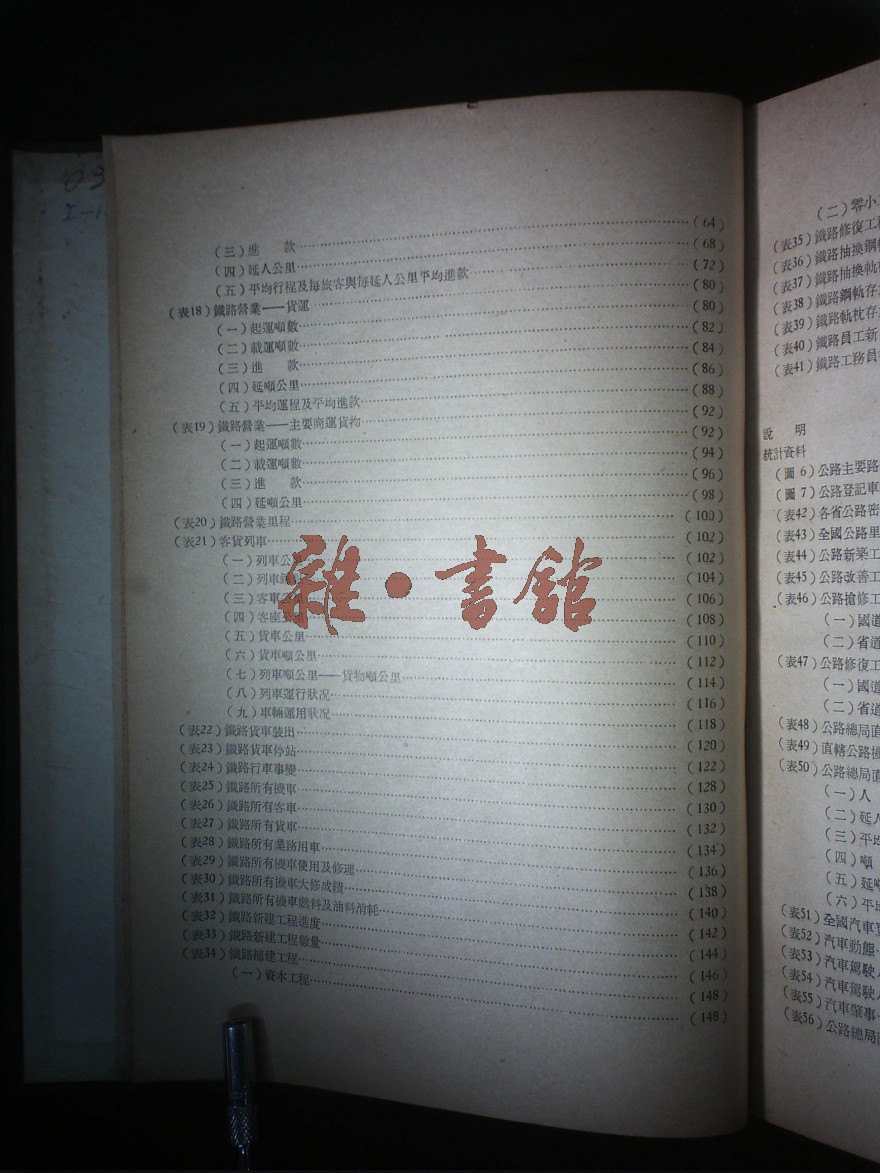 (三)進　款……(64)
(四)延人公里……(68)
(五)平均行程及每旅客與每延人公里平均進款……(72)
(表18)鐵路營業——貨運……(80)
(一)起運噸數……(80)
(二)載運噸數……(82)
(三)進　款……(84)
(四)延噸公里……(86)
(五)平均運程及平均進款……(88)
(表19)鐵路營業——主要商運貨物……(92)
(一)起運噸數……(92)
(二)載運噸數……(94)
(三)進　款……(96)
(四)延噸公里……(98)
(表20)鐵路營業里程……(100)
(表21)客貨列車……(102)
(一)列車公……(102)
(二)列車……(104)
(三)客車……(106)
(四)客座公里……(108)
(五)貨車公里……(110)
(六)貨車噸公里……(112)
(七)列車噸公里——貨物噸公里……(114)
(八)列車運行狀況……(116)
(九)車輛運用狀況……(118)
(表22)鐵路貨車裝出……(120)
(表23)鐵路貨車停站……(122)
(表24)鐵路行車事變……(128)
(表25)鐵路所有機車……(130)
(表26)鐵路所有客車……(132)
(表27)鐵路所有貨車……(134)
(表28)鐵路所有業務用車……(136)
(表29)鐵路所有機車使用及修理……(138)
(表30)鐵路所有機車大修成績……(140)
(表31)鐵路所有機車燃料及油料消耗……(142)
(表32)鐵路新建工程進度……(144)
(表33)鐵路新建工程數量……(146)
(表34)鐵路補建工程……(148)
(一)資本工程……(148)
雜·書館
(二)零小
(表35)鐵路修復工
(表36)鐵路抽換鋼
(表37)鐵路抽換軌
(表38)鐵路鋼軌存
(表39)鐵路軌枕存
(表40)鐵路員工新
(表41)鐵路工務員
說　明
統計資料
(圖 6)公路主要路
(圖 7)公路登記車
(表42)各省公路密
(表43)全國公路里
(表44)公路新築工
(表45)公路改善工
(表46)公路搶修工
(一)國道
(二)省道
(表47)公路修復工
(一)國道
(二)省道
(表48)公路總局直
(表49)直轄公路機
(表50)公路總局直
(一)人
(二)延人
(三)平均
(四)噸
(五)延噸
(六)平均
(表51)全國汽車登
(表52)汽車動態
(表53)汽車駕駛人
(表54)汽車駕駛人
(表55)汽車肇事
(表56)公路總局